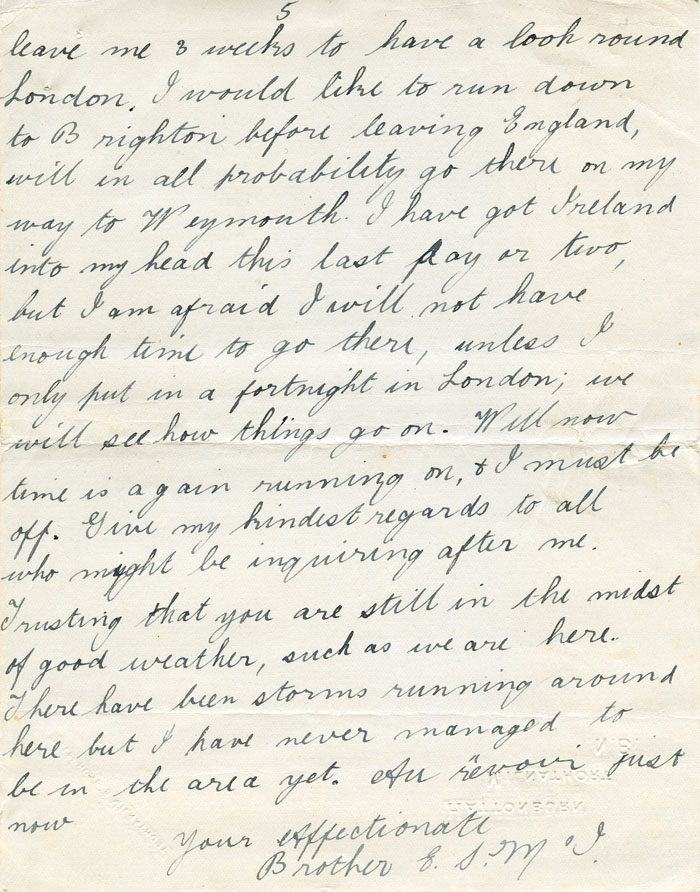 5
leave me 3 weeks to have a look round
London. I would like to run down
to Brighton before leaving England,
will in all probability go there on my
way to Weymouth. I have got Ireland
into my head this last day or two,
but I am afraid I will not have
enough time to go there, unless I
only put in a fortnight in London; we
will see how things go on. Will now
time is again running on, & I must be
off. Give my kindest regards to all
who might be inquiring after me.
Trusting that you are still in the midst
of good weather, such as we are here.
There have been storms running around
here but I have never managed to
be in the area yet. Au revoir just
now
Your Affectionate
Brother E. S. McI.
N.B.
MILNATHORT
HATTONBURN